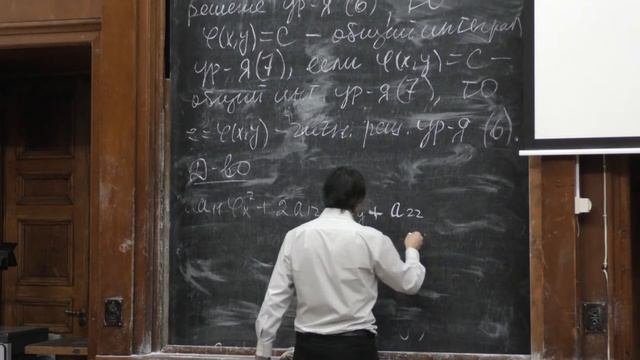 решение ур-я (6), то
φ(x,y)=C – общий интеграл
ур-я (7), если φ(x,y)=C –
общий инт. ур-я (7), то
z=φ(x,y) – реш. ур-я (6).
Д-во
a₁₁φₓ² + 2a₁₂ + a₂₂